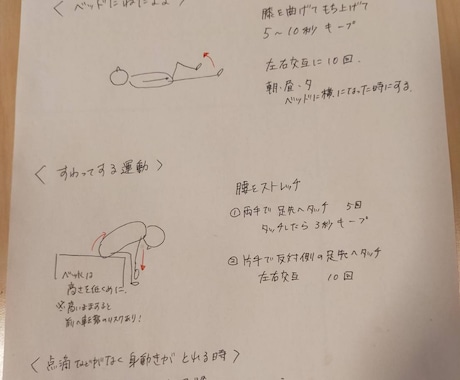 〈 ベッドにねたまま 〉
膝を曲げてもち上げて
5～10秒 キープ
左右交互に 10回.
朝・昼・夕
ベッドに横になった時にする.
〈 すわってする運動 〉
腰をストレッチ
①両手で足先へタッチ 5回
タッチしたら3秒キープ
②片手で反対側の足先へタッチ
左右交互 10回
ベッドは
高さを低くめに.
※高いまますると
前の転落のリスクあり!
〈 点滴などがなく身動きがとれる時 〉